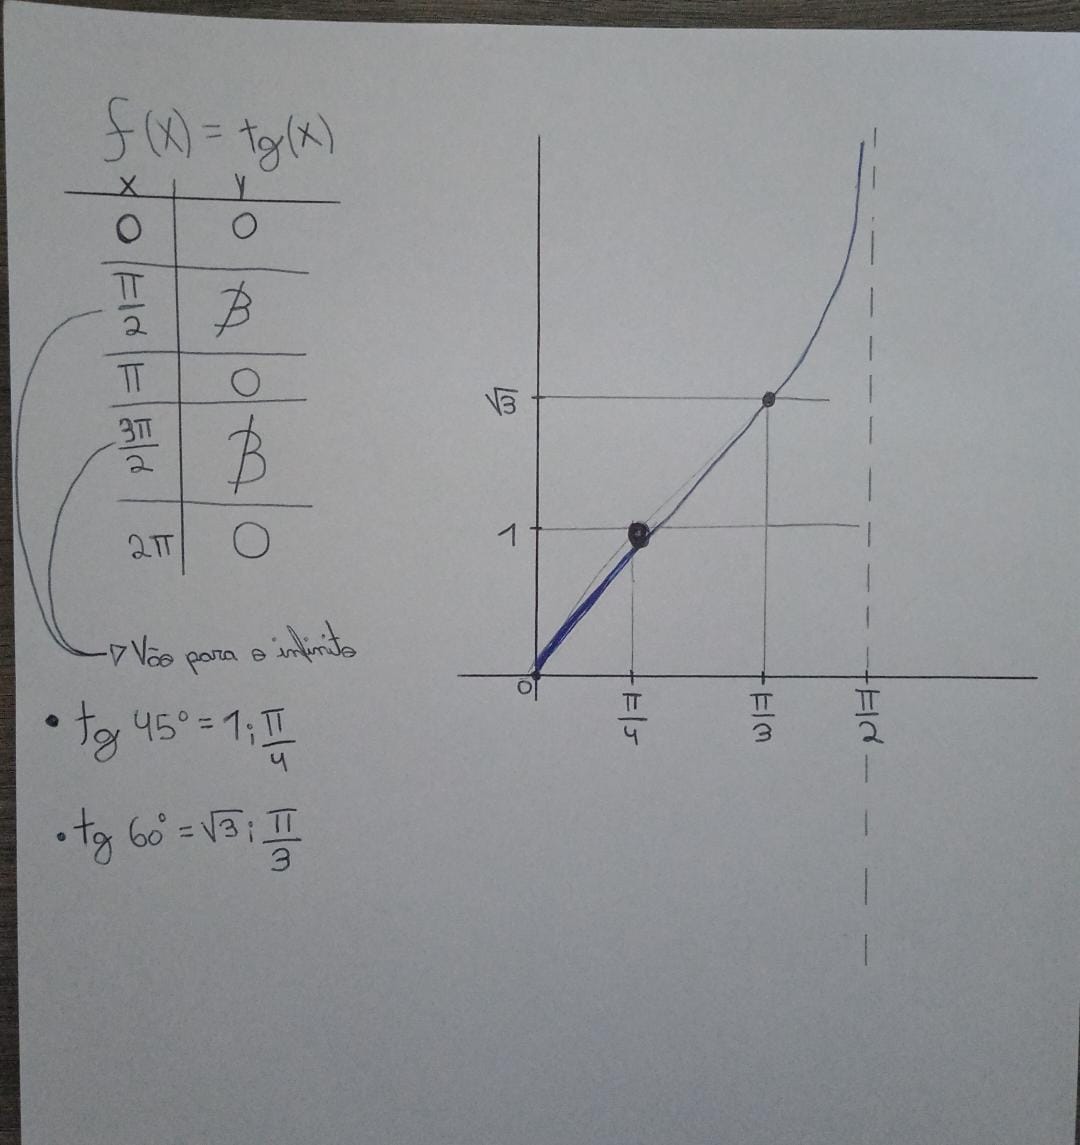 f(x) = tg(x)
x y
0 0
π/2 ∄
π 0
3π/2 ∄
2π 0
Vão para o infinito
• tg 45° = 1; π/4
• tg 60° = √3; π/3
√3
1
0 π/4 π/3 π/2